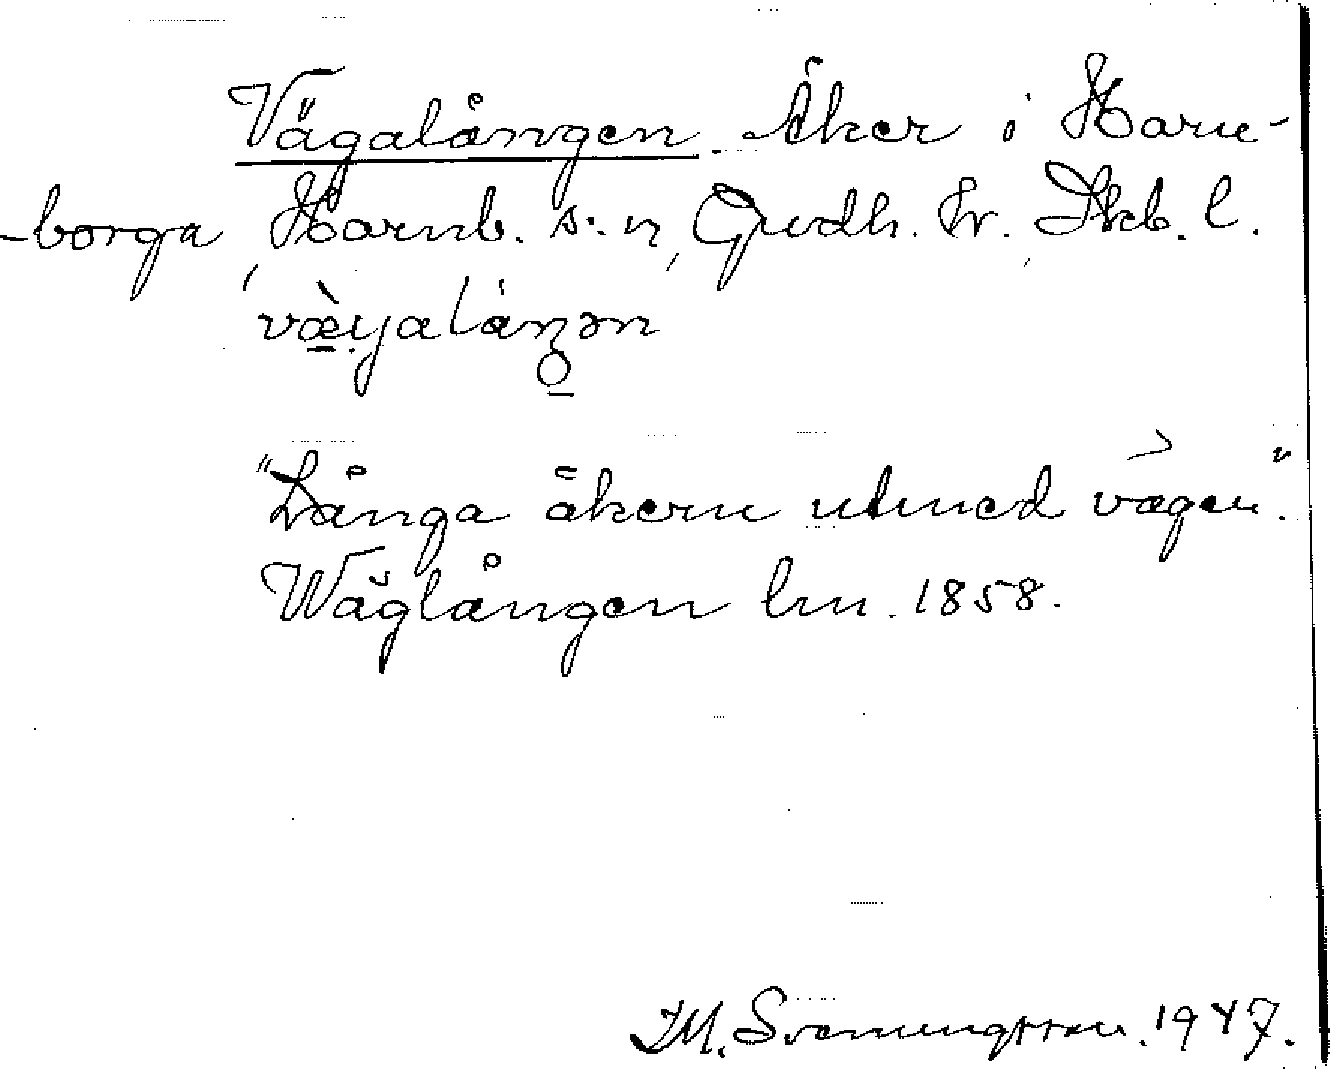 Vägalången. Åker i Horn-
-borga, Hornb. s:n, Gudh. hr, Skb. l.
vægalåŋən
"Långa åkern utmed vägen".
Wäglången lm. 1858.
M. Svenningsson. 1947.